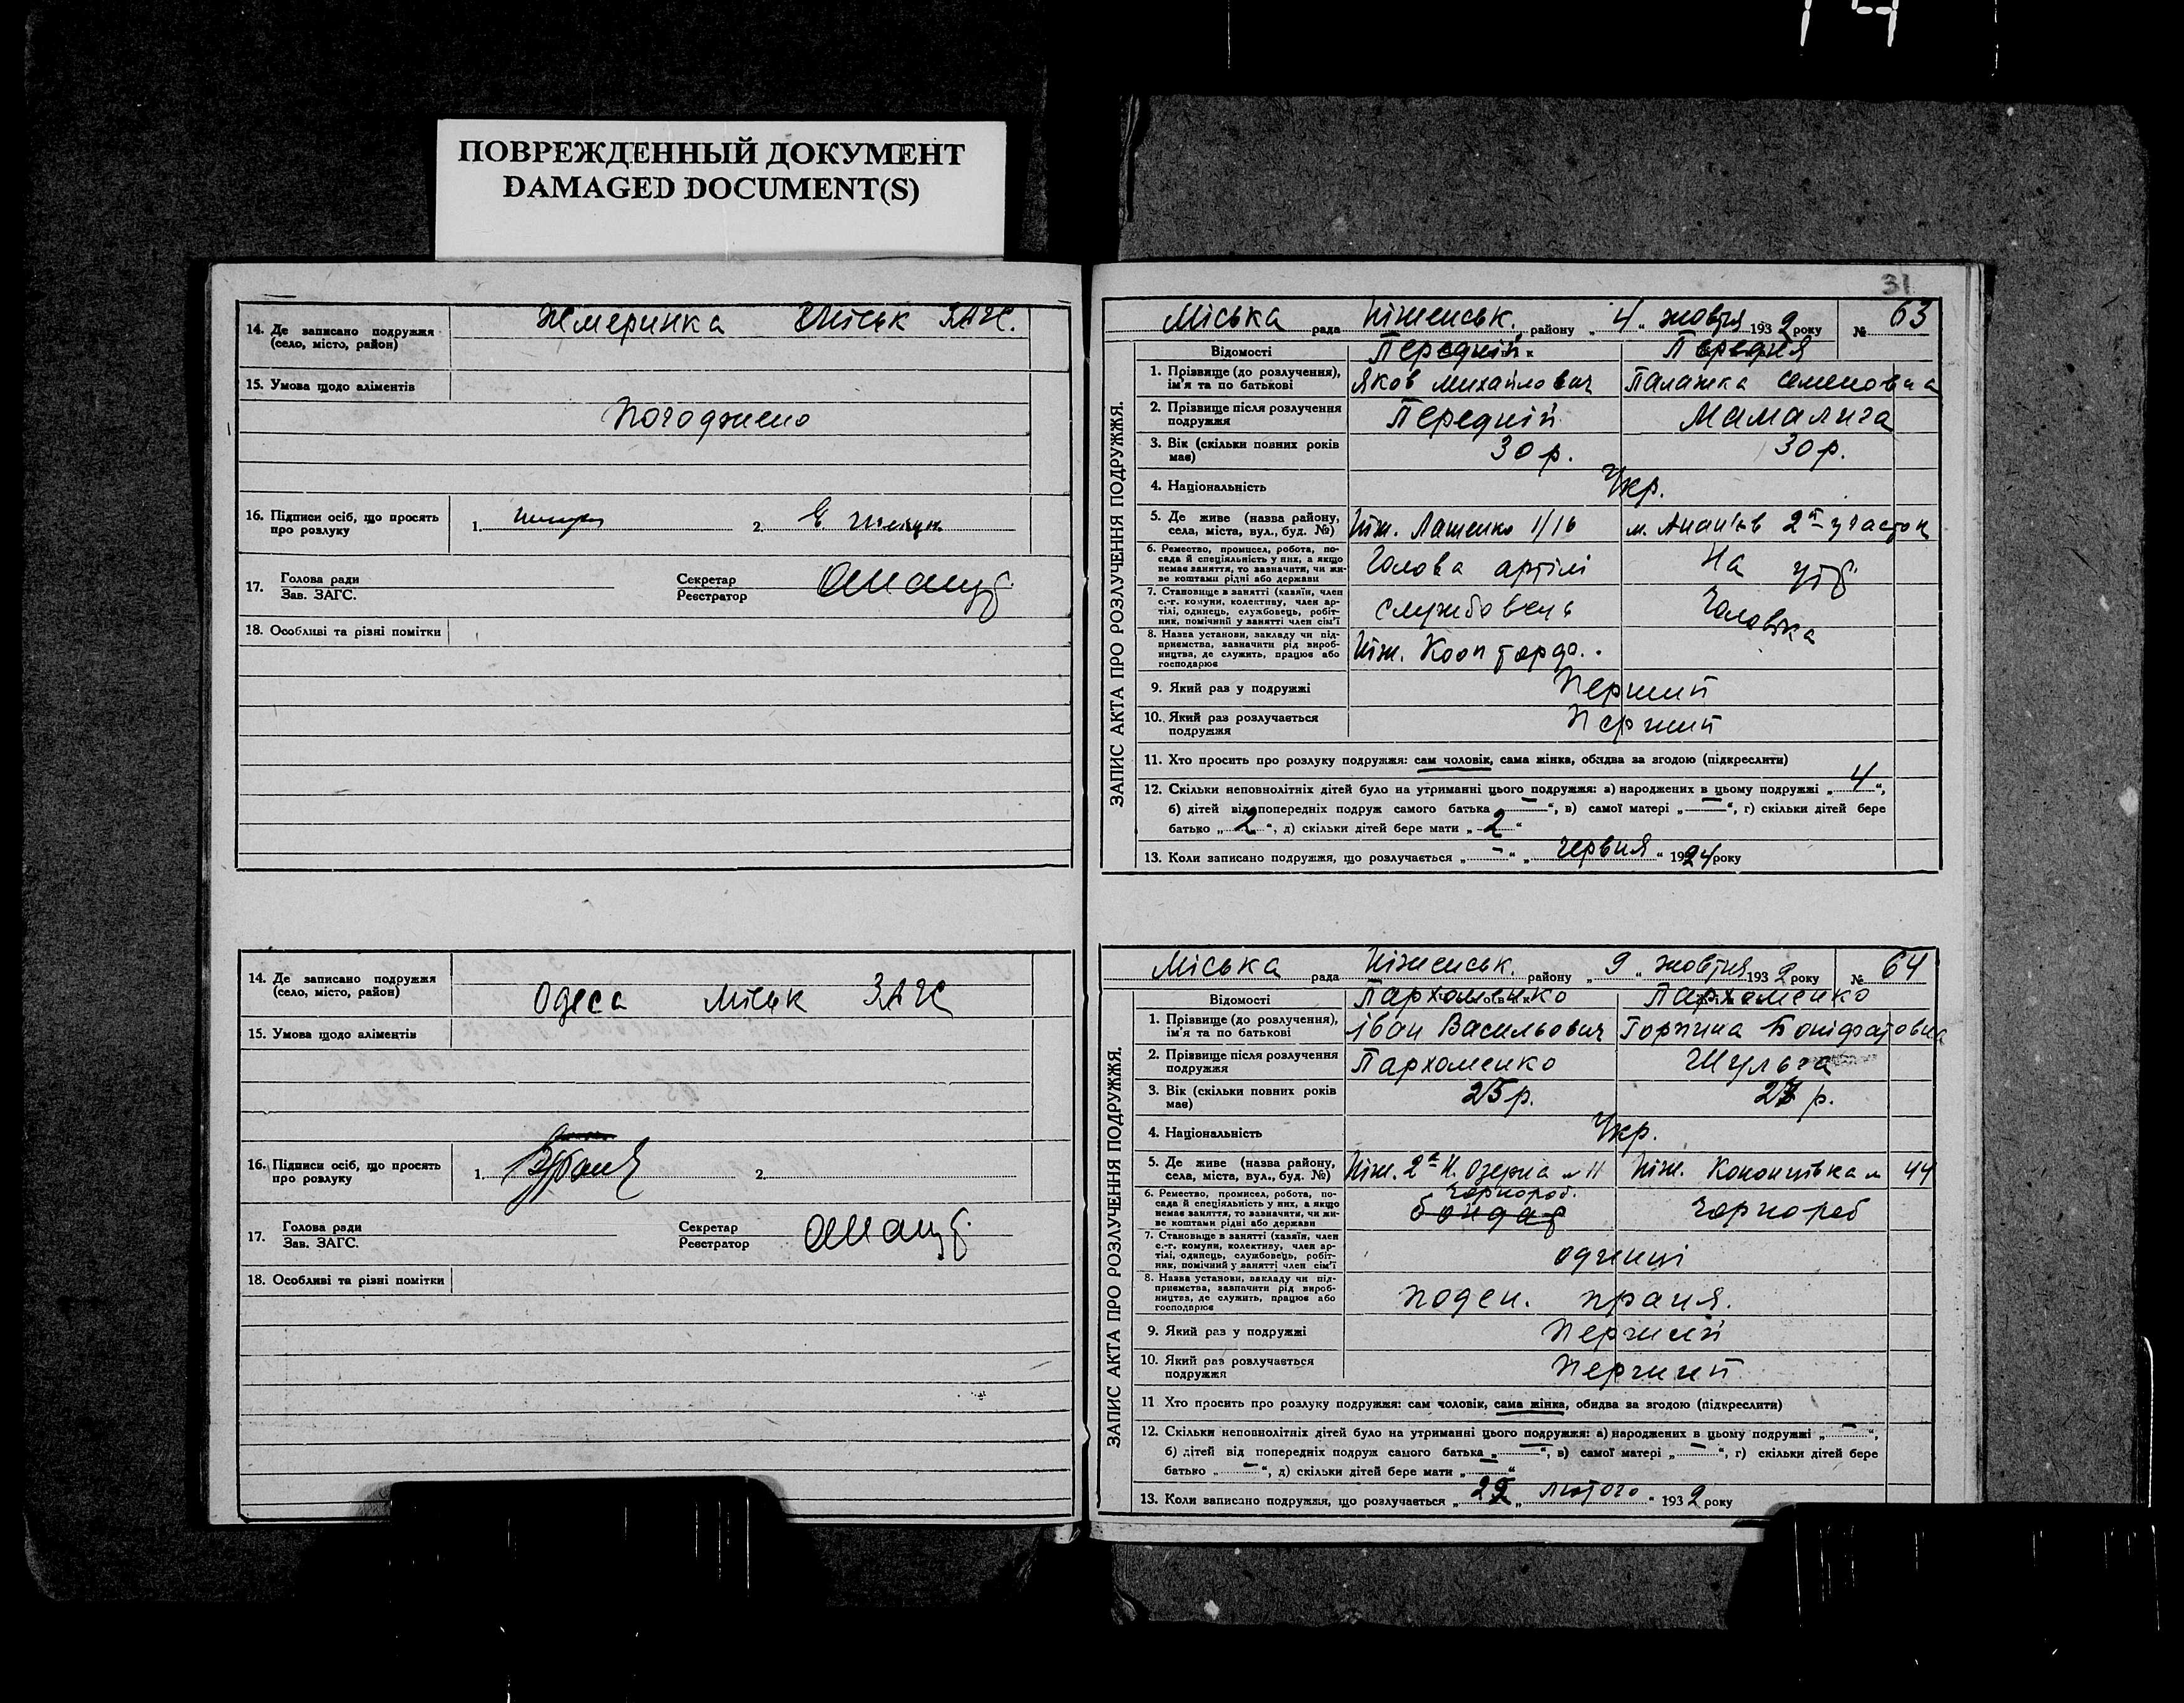 ПОВРЕЖДЕННЫЙ ДОКУМЕНТ
DAMAGED DOCUMENT(S)
14. Де записано подружжя (село, місто, район) Жмеринка Міськ ЗАГС.
15. Умова щодо аліментів
Погоджено
16. Підписи осіб, що просять про розлуку 1. 2.
17. Голова ради Зав. ЗАГС. Секретар Реєстратор
18. Особливі та різні помітки
14. Де записано подружжя (село, місто, район) Одеса міськ ЗАГС
15. Умова щодо аліментів
16. Підписи осіб, що просять про розлуку 1. 2.
17. Голова ради Зав. ЗАГС. Секретар Реєстратор
18. Особливі та різні помітки
31
ЗАПИС АКТА ПРО РОЗЛУЧЕННЯ ПОДРУЖЖЯ.
Міська рада Ніженськ. району „4" жовтня 1932 року № 63
Відомості Передній Передня
1. Прізвище (до розлучення), ім'я та по батькові Яков Михайлович Палажка Семеновна
2. Прізвище після розлучення подружжя Передній Мамалига
3. Вік (скільки повних років має) 30 р. 30 р.
4. Національність Укр.
5. Де живе (назва району, села, міста, вул., буд. №) Ніж. Лашенко 1/16 м. Ананьїв 2й участок
6. Ремество, промисел, робота, посада й спеціяльність у них, а якщо немає заняття, то зазначити, чи живе коштами рідні або держави Голова артілі На утр.
7. Становище в занятті (хазяїн, член с.-г. комуни, колективу, член артілі, одинець, службовець, робітник, помічний у занятті член сім'ї службовець Чоловіка
8. Назва установи, закладу чи підприємства, зазначити рід виробництва, де служить, працює або господарює Ніж. Кооп
9. Який раз у подружжі Перший
10. Який раз розлучається подружжя Перший
11. Хто просить про розлуку подружжя: сам чоловік, сама жінка, обидва за згодою (підкреслити)
12. Скільки неповнолітніх дітей було на утриманні цього подружжя: а) народжених в цьому подружжі „4",
б) дітей від попередніх подруж самого батька „—", в) самої матері „—", г) скільки дітей бере
батько „2", д) скільки дітей бере мати „2"
13. Коли записано подружжя, що розлучається „-" „червня" 1924 року
ЗАПИС АКТА ПРО РОЗЛУЧЕННЯ ПОДРУЖЖЯ.
Міська рада Ніженськ. району „9" жовтня 1932 року № 64
Відомості Пархоменко Пархоменко
1. Прізвище (до розлучення), ім'я та по батькові Іван Васильович Горпина Боніфатовна
2. Прізвище після розлучення подружжя Пархоменко Шульга
3. Вік (скільки повних років має) 25 р. р.
4. Національність Укр.
5. Де живе (назва району, села, міста, вул., буд. №) Ніж. 2а Н. Озерна № 11 Ніж. Кононівка № 44
6. Ремество, промисел, робота, посада й спеціяльність у них, а якщо немає заняття, то зазначити, чи живе коштами рідні або держави чорнороб. бондар Чорнороб
7. Становище в занятті (хазяїн, член с.-г. комуни, колективу, член артілі, одинець, службовець, робітник, помічний у занятті член сім'ї одинці
8. Назва установи, закладу чи підприємства, зазначити рід виробництва, де служить, працює або господарює поден. праця.
9. Який раз у подружжі Перший
10. Який раз розлучається подружжя Перший
11 Хто просить про розлуку подружжя: сам чоловік, сама жінка, обидва за згодою (підкреслити)
12. Скільки неповнолітніх дітей було на утриманні цього подружжя: а) народжених в цьому подружжі „—",
б) дітей від попередніх подруж самого батька „—", в) самої матері „—", г) скільки дітей бере
батько „—", д) скільки дітей бере мати „—"
13. Коли записано подружжя, що розлучається „22" „лютого" 1932 року